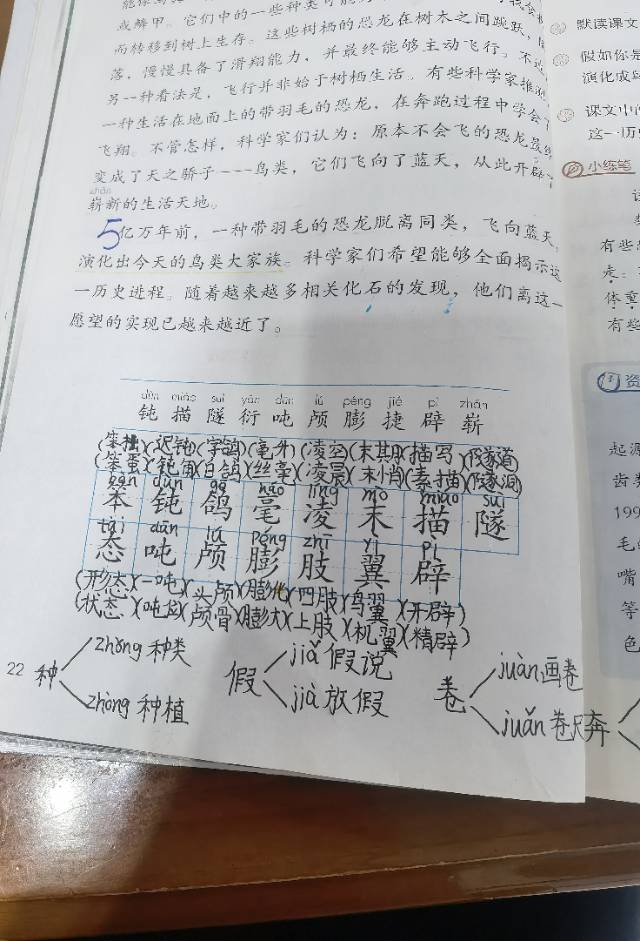 或鳞甲。它们中的一些种类可能
而转移到树上生存。这些树栖的恐龙在树木之间跳跃、
落，慢慢具备了滑翔能力，并最终能够主动飞行。不过
另一种看法是，飞行并非始于树栖生活。有些科学家推测
一种生活在地面上的带羽毛的恐龙，在奔跑过程中学会
飞翔。不管怎样，科学家们认为：原本不会飞的恐龙最终
变成了天之骄子----鸟类，它们飞向了蓝天，从此开辟
zhǎn
崭新的生活天地。
5 亿万年前，一种带羽毛的恐龙脱离同类，飞向蓝天，
演化出今天的鸟类大家族。科学家们希望能够全面揭示这
一历史进程。随着越来越多相关化石的发现，他们离这一
愿望的实现已越来越近了。
dùn miáo suì yǎn dūn lú péng jié pì zhǎn
钝 描 隧 衍 吨 颅 膨 捷 辟 崭
(笨拙)(迟钝)(字鸽)(毫升)(凌空)(末期)(描写)(隧道)
(笨蛋)(钝角)(白鸽)(丝毫)(凌晨)(末梢)(素描)(隧洞)
bèn dùn gē háo líng mò miáo suì
笨 钝 鸽 毫 凌 末 描 隧
tài dūn lú péng zhī yì pì
态 吨 颅 膨 肢 翼 辟
(形态)(一吨)(头颅)(膨化)(四肢)(鸟翼)(开辟)
(状态)(吨位)(颅骨)(膨大)(上肢)(机翼)(精辟)
22 种 zhǒng 种类 假 jiǎ 假说 卷 juàn 画卷
zhòng 种植 jià 放假 juǎn 卷尺 奔
默读课文
假如你是
演化成
课文中
这一历
小练笔
有些
态：
体重
有些
资
起源
齿类
199
毛
嘴
等
色